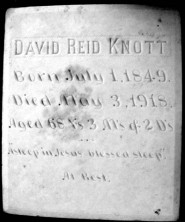 DAVID REID KNOTT
Born July 1, 1849.
Died May 3, 1918.
Aged 68 Ys 3 Ms & 2 Ds
Asleep in Jesus blessed sleep.
At Rest.